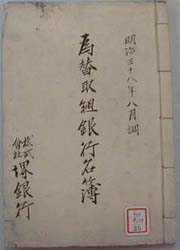 明治三十八年八月調
為替取組銀行名簿
株式
會社
堺銀行